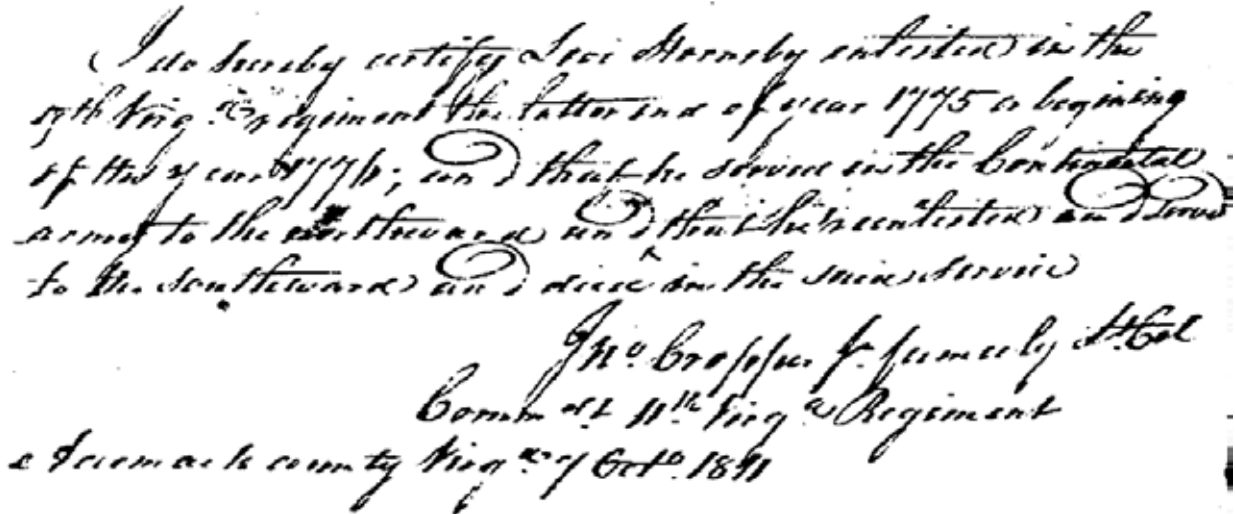 I do hereby certify Levi Hornsby enlisted in the
9th Virga regiment the latter end of year 1775 or begining
of the year 1776; and that he served in the Continental
army to the northward and that he reenlisted and serv
to the southward and died in the said service
Jno. Cropper Jr. formerly Lt. Col
Commdt 11th Virga Regiment
Accomack county Virga 7 Octo.